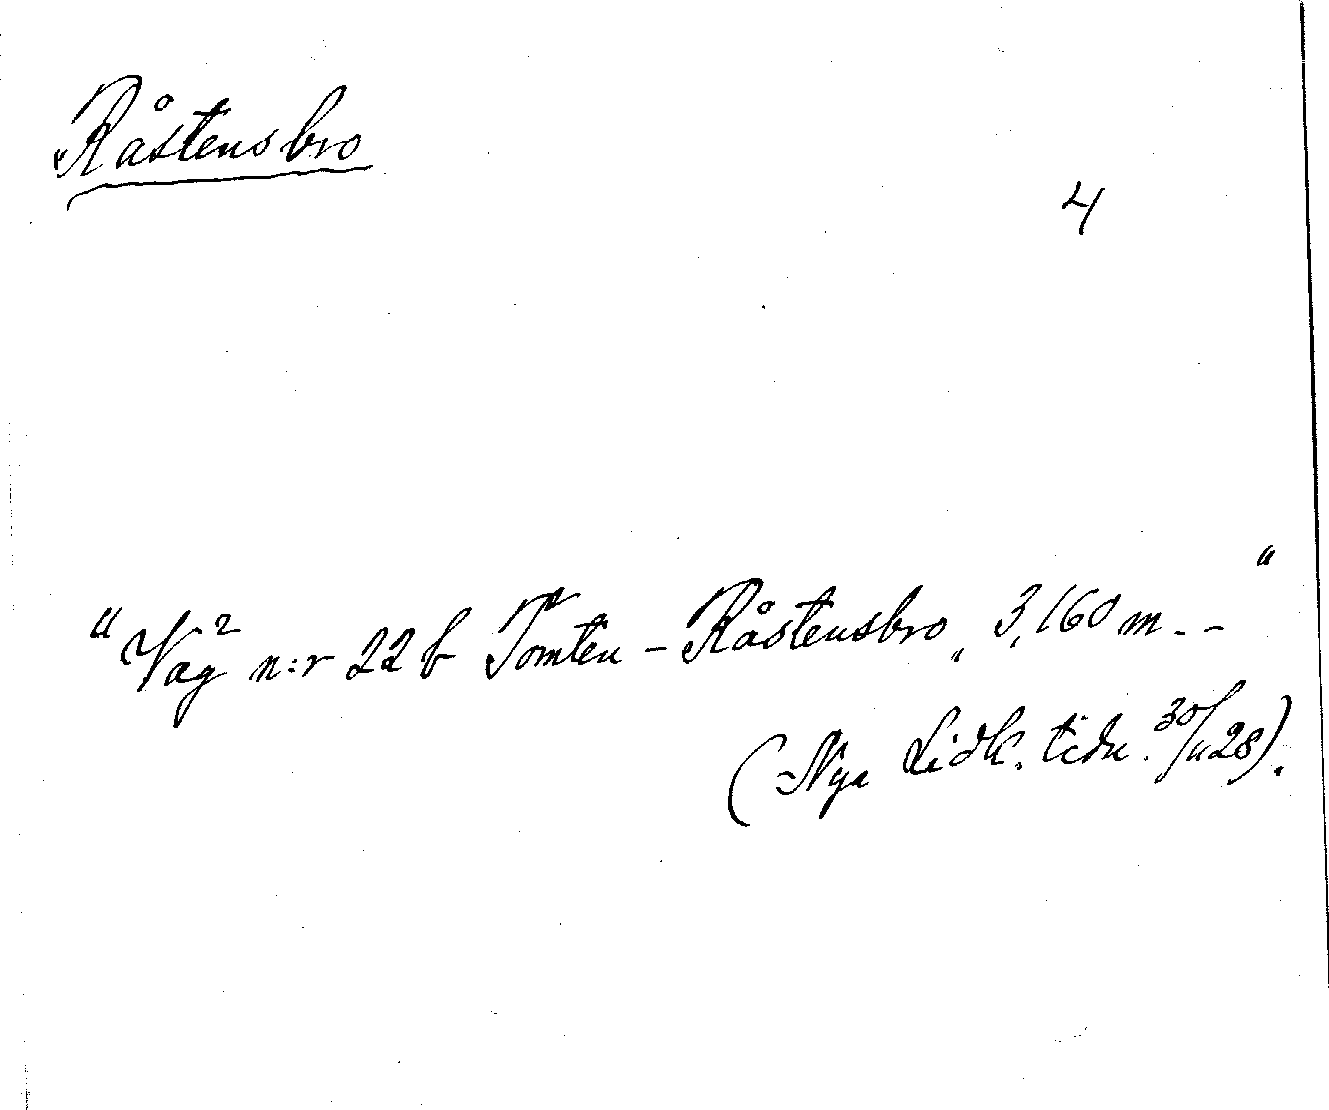 Råstensbro
4
"Väg n:r 22 b Tomten - Råstensbro, 3,160 m. - - "
(Nya Lidk. tidn. 30/11 28).